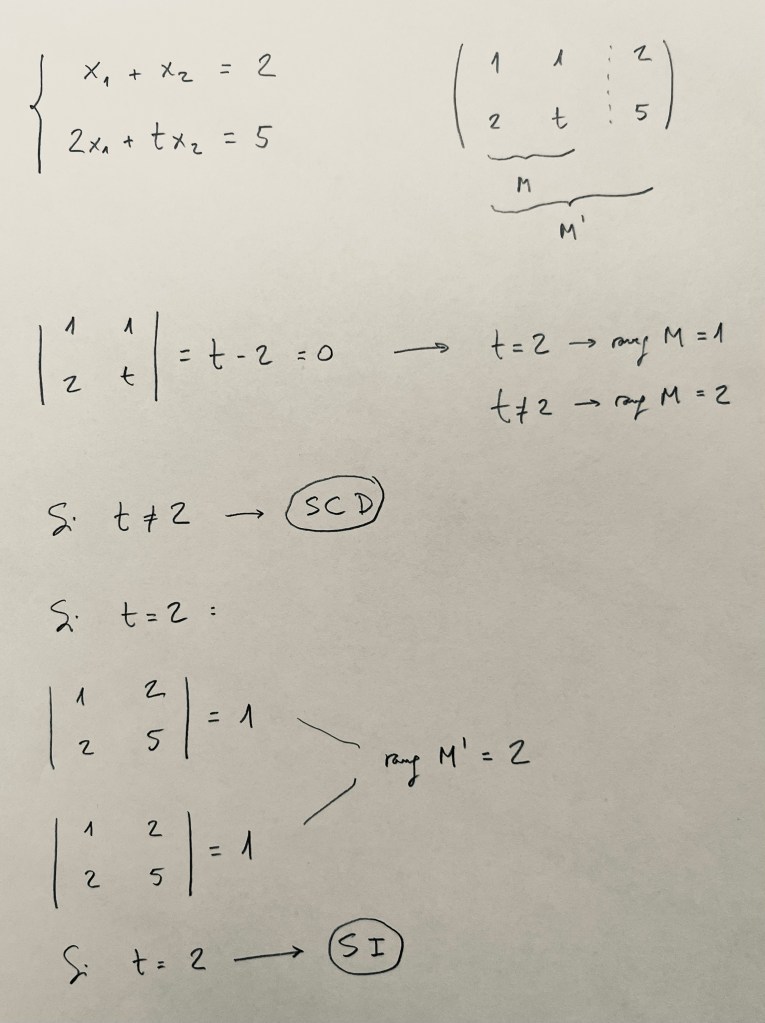 x₁ + x₂ = 2
2x₁ + tx₂ = 5
1 1 ⋮ 2
2 t ⋮ 5
M
M'
|1 1|
|2 t| = t - 2 = 0 → t = 2 → rang M = 1
t ≠ 2 → rang M = 2
Si t ≠ 2 → SCD
Si t = 2 :
|1 2|
|2 5| = 1
rang M' = 2
|1 2|
|2 5| = 1
Si t = 2 → SI